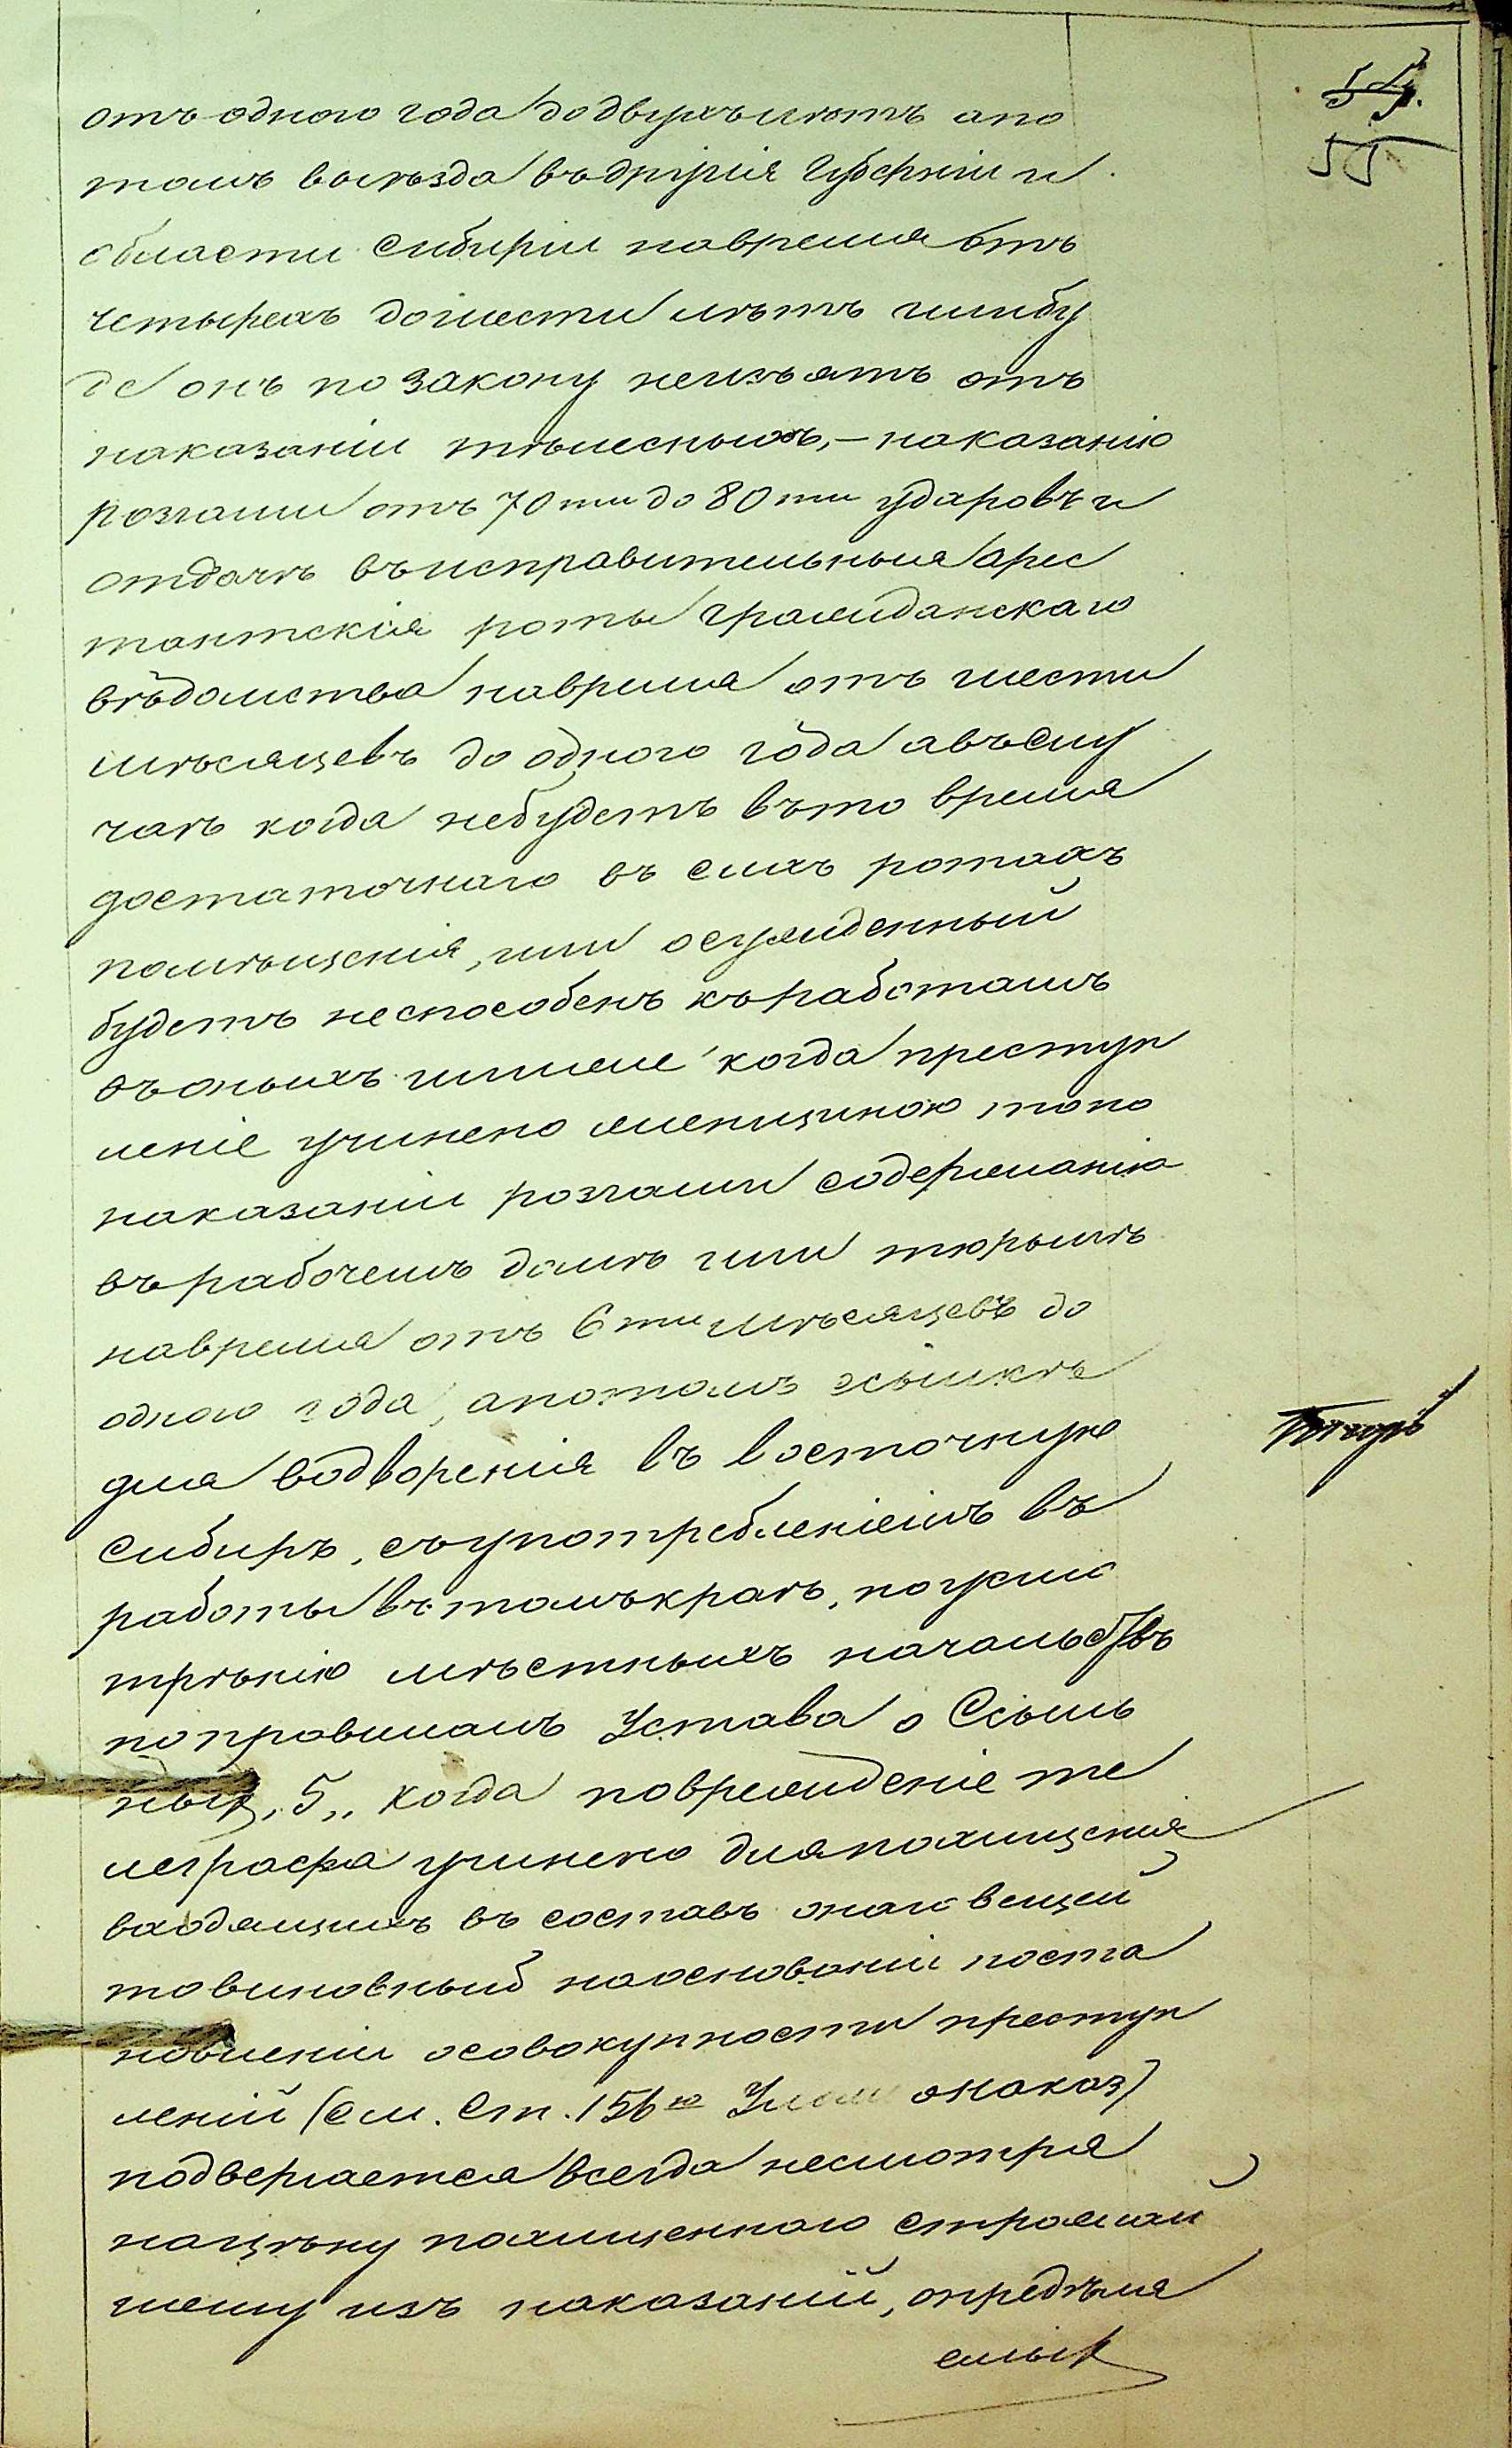 55
отъ одного года до двухъ лѣтъ апо
томъ выѣзда въ другія Губерніи и
области Сибири навремя отъ
четырехъ до шести лѣтъ илибу
де онъ по закону неизъятъ отъ
наказаніи тѣлесныхъ,- наказанію
розгами отъ 70ти до 80ти ударовъ и
отдачѣ въ исправительныя арес
тантскія роты гражданскаго
вѣдомства навремя отъ шести
мѣсяцевъ до одного года авъслу
чаѣ когда небудетъ въто время
достаточнаго въ сихъ ротахъ
помѣщенія, или осужденный
будетъ неспособенъ къ работамъ
въ оныхъ илиже когда преступ
леніе учинено женщиною, топо
наказаніи розгами содержанію
въ рабочемъ домѣ или тюрьмѣ
навремя отъ 6ти мѣсяцевъ до
одного года, апотомъ ссылкѣ
для водворенія въ восточную
Сибирь, съупотребленіемъ въ
работы въ томъ краѣ, поусмо
трѣнію мѣстныхъ начальствъ
по правиламъ Устава о Ссыль
ныхъ, 5,, когда поврежденіе те
леграфа учинено для похищенія
входящихъ въ составъ онаго вещей
товиновный наоснованіи поста
новленіи осовокупности преступ
леній (см. Ст. 156ю Улож онаказ)
подвергается всегда несмотря
нацѣну похищеннаго строжай
шему изъ наказаній, опредѣля
емых